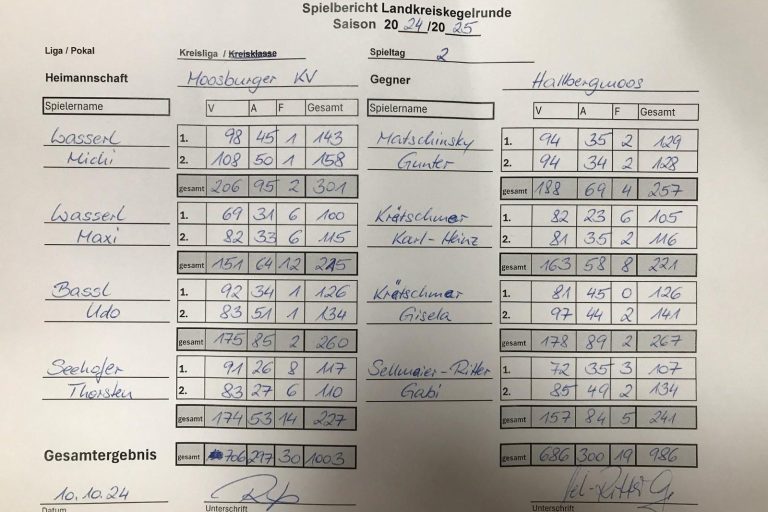 Spielbericht Landkreiskegelrunde
Saison 2024/2025
Liga / Pokal Kreisliga / Kreisklasse Spieltag 2
Heimannschaft Moosburger KV Gegner Hallbergmoos
Spielername V A F Gesamt Spielername V A F Gesamt
Wasserl 1. 98 45 1 143 Matschinsky 1. 94 35 2 129
Michi 2. 108 50 1 158 Gunter 2. 94 34 2 128
gesamt 206 95 2 301 gesamt 188 69 4 257
Wasserl 1. 69 31 6 100 Krätschmar 1. 82 23 6 105
Maxi 2. 82 33 6 115 Karl-Heinz 2. 81 35 2 116
gesamt 151 64 12 215 gesamt 163 58 8 221
Bassl 1. 92 34 1 126 Krätschmar 1. 81 45 0 126
Udo 2. 83 51 1 134 Gisela 2. 97 44 2 141
gesamt 175 85 2 260 gesamt 178 89 2 267
Seehofer 1. 91 26 8 117 Sellmaier-Ritter 1. 72 35 3 107
Thorsten 2. 83 27 6 110 Gabi 2. 85 49 2 134
gesamt 174 53 14 227 gesamt 157 84 5 241
Gesamtergebnis gesamt 706 297 30 1003 gesamt 686 300 19 986
10.10.24
Datum Unterschrift Unterschrift